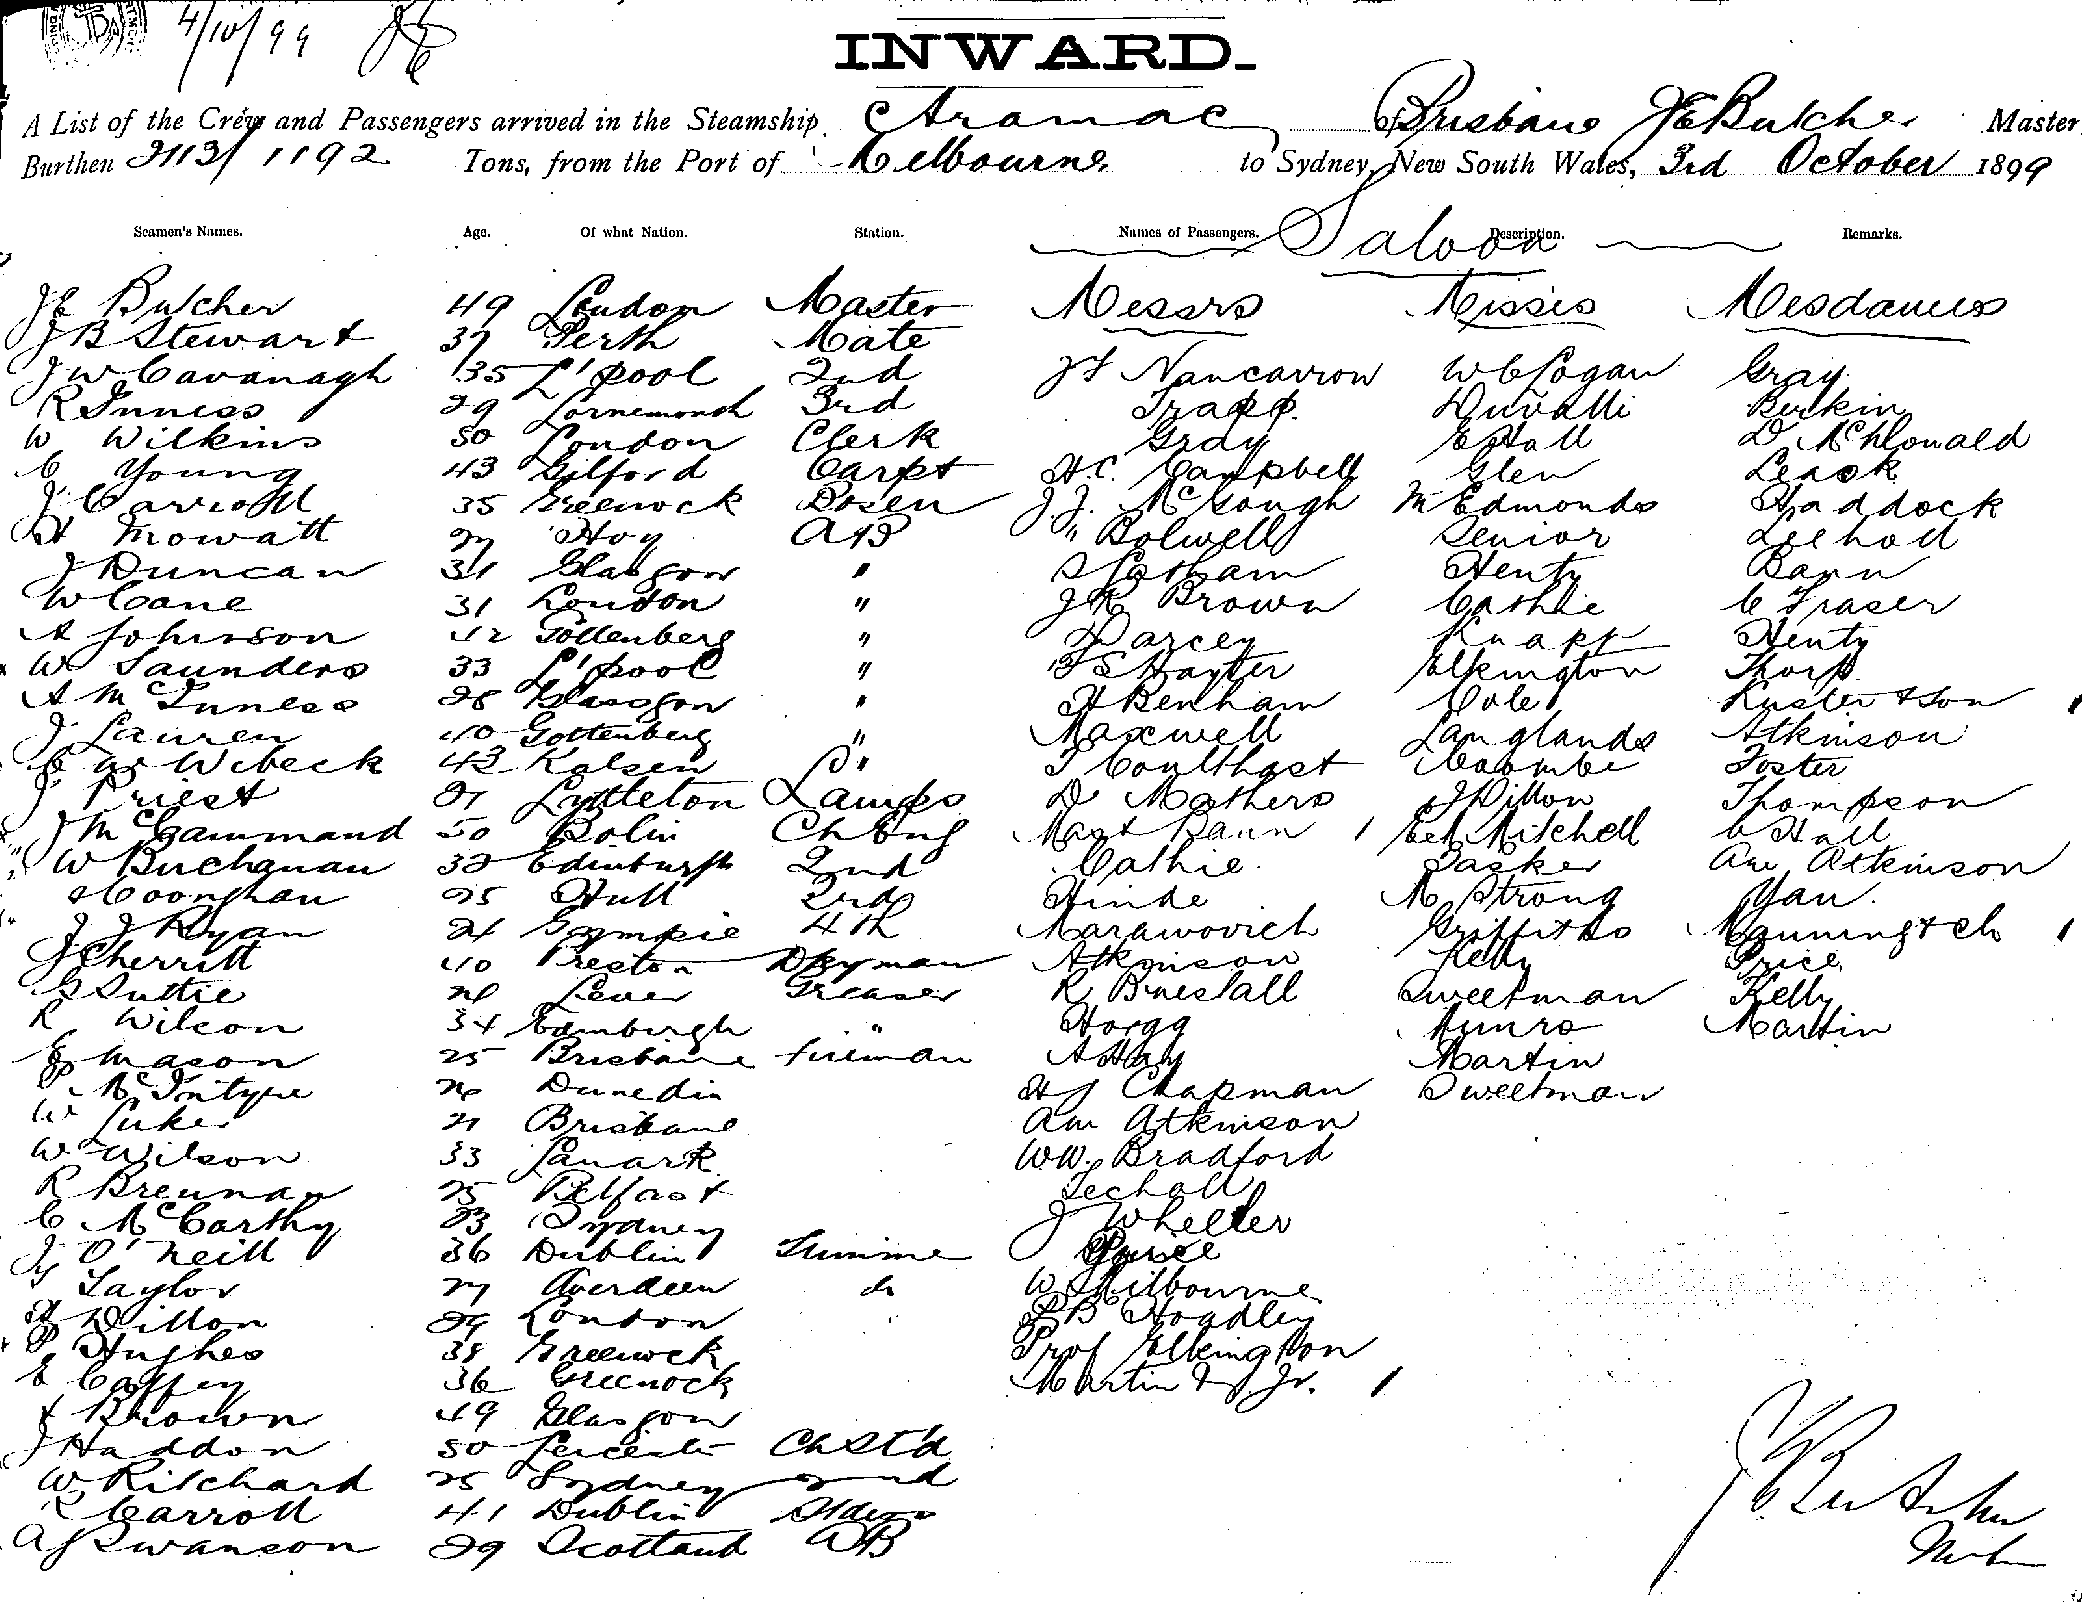 4/10/99
INWARD.
A List of the Crew and Passengers arrived in the Steamship Aramac, Brisbane JE Butcher Master
Burthen 2113/1192 Tons, from the Port of Melbourne to Sydney, New South Wales, 3rd October 1899
Seamen's Names. Age. Of what Nation. Station. Names of Passengers. Saloon Description. Remarks.
JE Butcher 49 London Master Messrs Missis Mesdames
J B Stewart 37 Perth Mate
J W Cavanagh 35 L'pool 2nd Nancarrow W C Logan Gray
R Inness 29 3rd Trapp Duvalli
W Wilkins 50 London Clerk Gray E Hall D McDonald
C Young 43 Gilford Carpt H.C. Campbell Glen Leack
J Carroll 35 Greenock Bosen J.J. McGough M Edmonds Haddock
H Mowatt 27 Hoy AB " Bolwell Senior
J Duncan 31 Glasgow " Henty Bann
W Cane 31 London " J R Brown Cathie C Fraser
A Johnson 42 Gottenberg " Darcey Knapp Henty
W Saunders 33 L'pool " Hayter Elkington Thorp
A McInness 28 Glasgow " H Benham Cole Kuster & Son 1
J Lauren 40 Gottenberg " Maxwell Langlands Atkinson
C W Wibeck 43 " Coombe Foster
J Priest 27 Lyttleton Lamps D Mathers J Dillon Thompson
J McGammand 50 Ch Eng Mast Bann 1 E A Mitchell C Hall
W Buchanan 32 Edinburgh 2nd Cathie Tasker AW Atkinson
Coonghan 25 Hull 3rd Hinde M Strong Yan
J J Ryan 24 Gympie 4th Marawovich Griffiths Manning & Ch 1
J Cherritt 40 Preston Dkyman Atkinson Kelly Price
G Suttie Leven Greaser R Birestall Sweetman Kelly
R Wilson 34 Edinburgh " Horgg Munro Martin
Mason 25 Brisbane Fireman A Hay Martin
McIntype 26 Dunedin H J Chapman Sweetman
W Luke 21 Brisbane AW Atkinson
W Wilson 33 Lanark WW. Bradford
R Brennan 25 Belfast
C McCarthy 23 Sydney J Wheeler
J O'Neill 36 Dublin Trimme Price
Taylor 27 Averdeen do W Milbourne
H Dillon 29 London Hoadley
P Hughes 38 Greenock Prof Elkington
E Caffey 36 Greenock Martin & J Jr. 1
Brown 49 Glasgow
J Haddon 50 Leicester Ch St'd
W Ritchard 25 Sydney 2nd
R Carroll 41 Dublin
A J Swanson 29 Scotland AB
JE Butcher